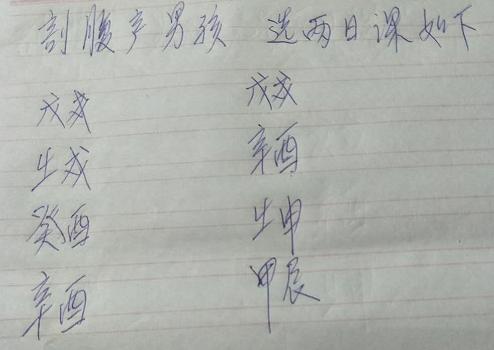 剖腹产男孩 选两日课如下
戊戌 戊戌
壬戌 辛酉
癸酉 壬申
辛酉 甲辰